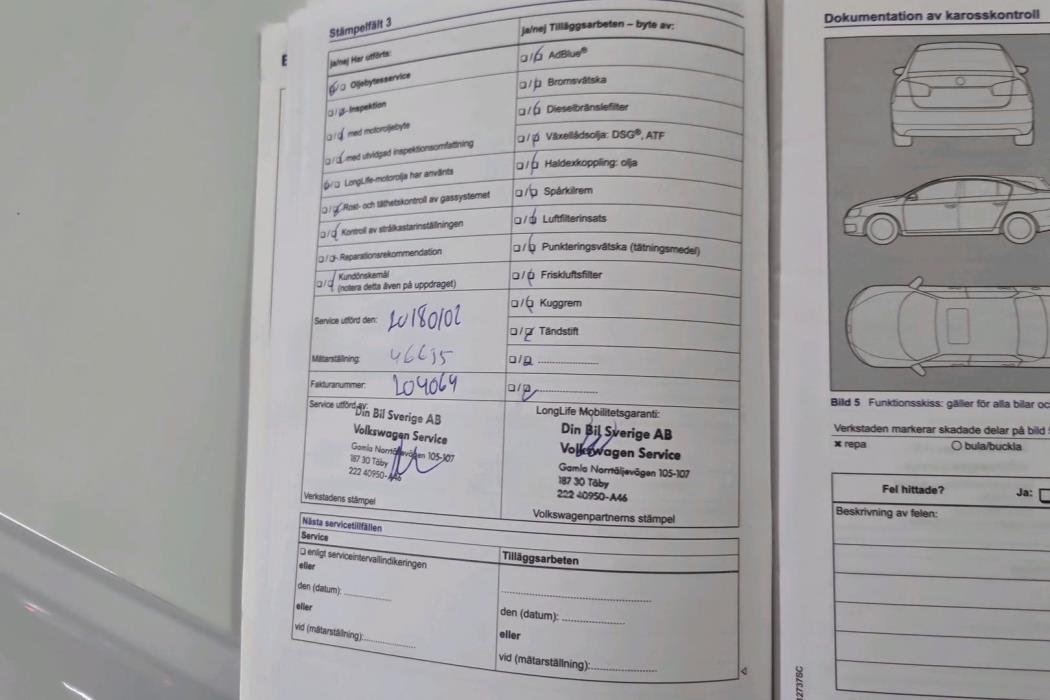 Stämpelfält 3
ja/nej Har utförts:
Oljebytesservice
Inspektion
med motoroljebyte
med utvidgad inspektionsomfattning
LongLife-motorolja har använts
Rost- och täthetskontroll av gassystemet
Kontroll av strålkastarinställningen
Reparationsrekommendation
Kundönskemål
(notera detta även på uppdraget)
Service utförd den: 20180102
Mätarställning: 46635
Fakturanummer: 204064
Service utförd av:
Din Bil Sverige AB
Volkswagen Service
Gamla Norrtäljevägen 105-107
187 30 Täby
222 40950-A46
Verkstadens stämpel
ja/nej Tilläggsarbeten – byte av:
AdBlue®
Bromsvätska
Dieselbränslefilter
Växellådsolja: DSG®, ATF
Haldexkoppling: olja
Spårkilrem
Luftfilterinsats
Punkteringsvätska (tätningsmedel)
Friskluftsfilter
Kuggrem
Tändstift
LongLife Mobilitetsgaranti:
Din Bil Sverige AB
Volkswagen Service
Gamla Norrtäljevägen 105-107
187 30 Täby
222 40950-A46
Volkswagenpartnerns stämpel
Nästa servicetillfällen
Service
enligt serviceintervallindikeringen
eller
den (datum):
eller
vid (mätarställning):
Tilläggsarbeten
den (datum):
eller
vid (mätarställning):
Dokumentation av karosskontroll
Bild 5 Funktionsskiss: gäller för alla bilar
Verkstaden markerar skadade delar på bild
repa
bula/buckla
Fel hittade? Ja:
Beskrivning av felen:
12737SC